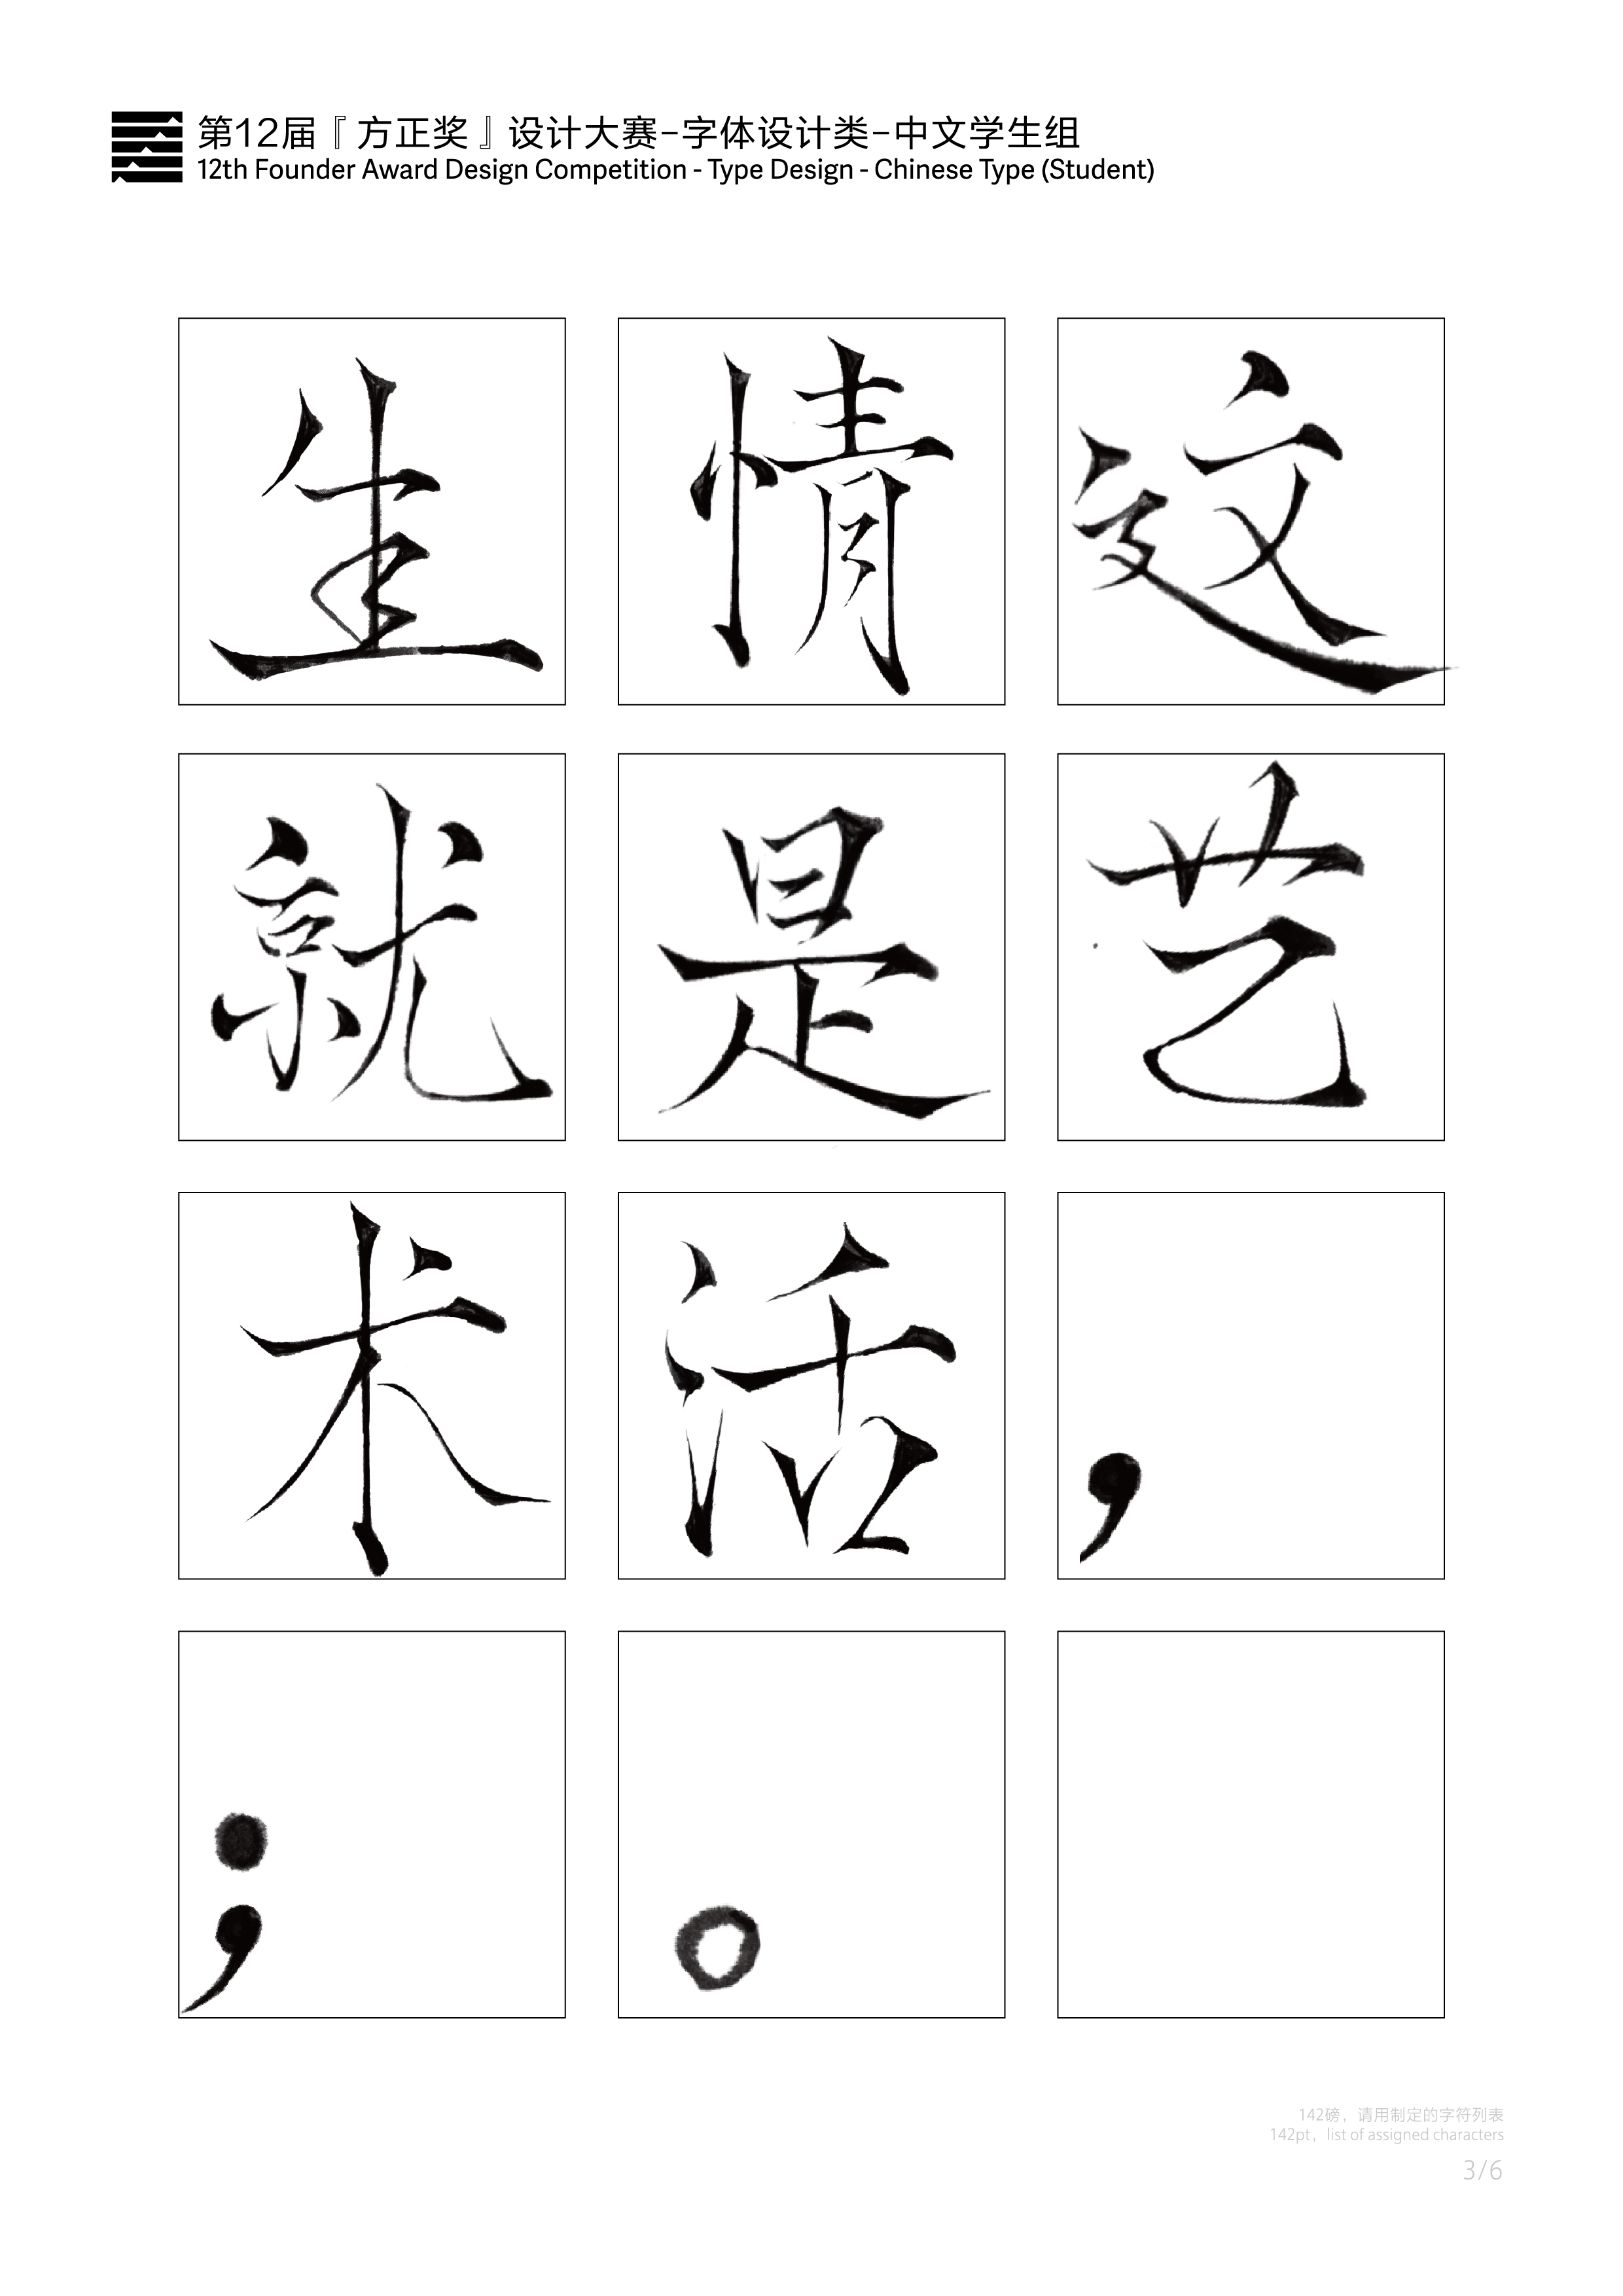 第12届『方正奖』设计大赛-字体设计类-中文学生组
12th Founder Award Design Competition - Type Design - Chinese Type (Student)
生情这
就是艺
术活，
；。
142磅，请用制定的字符列表
142pt，list of assigned characters
3/6